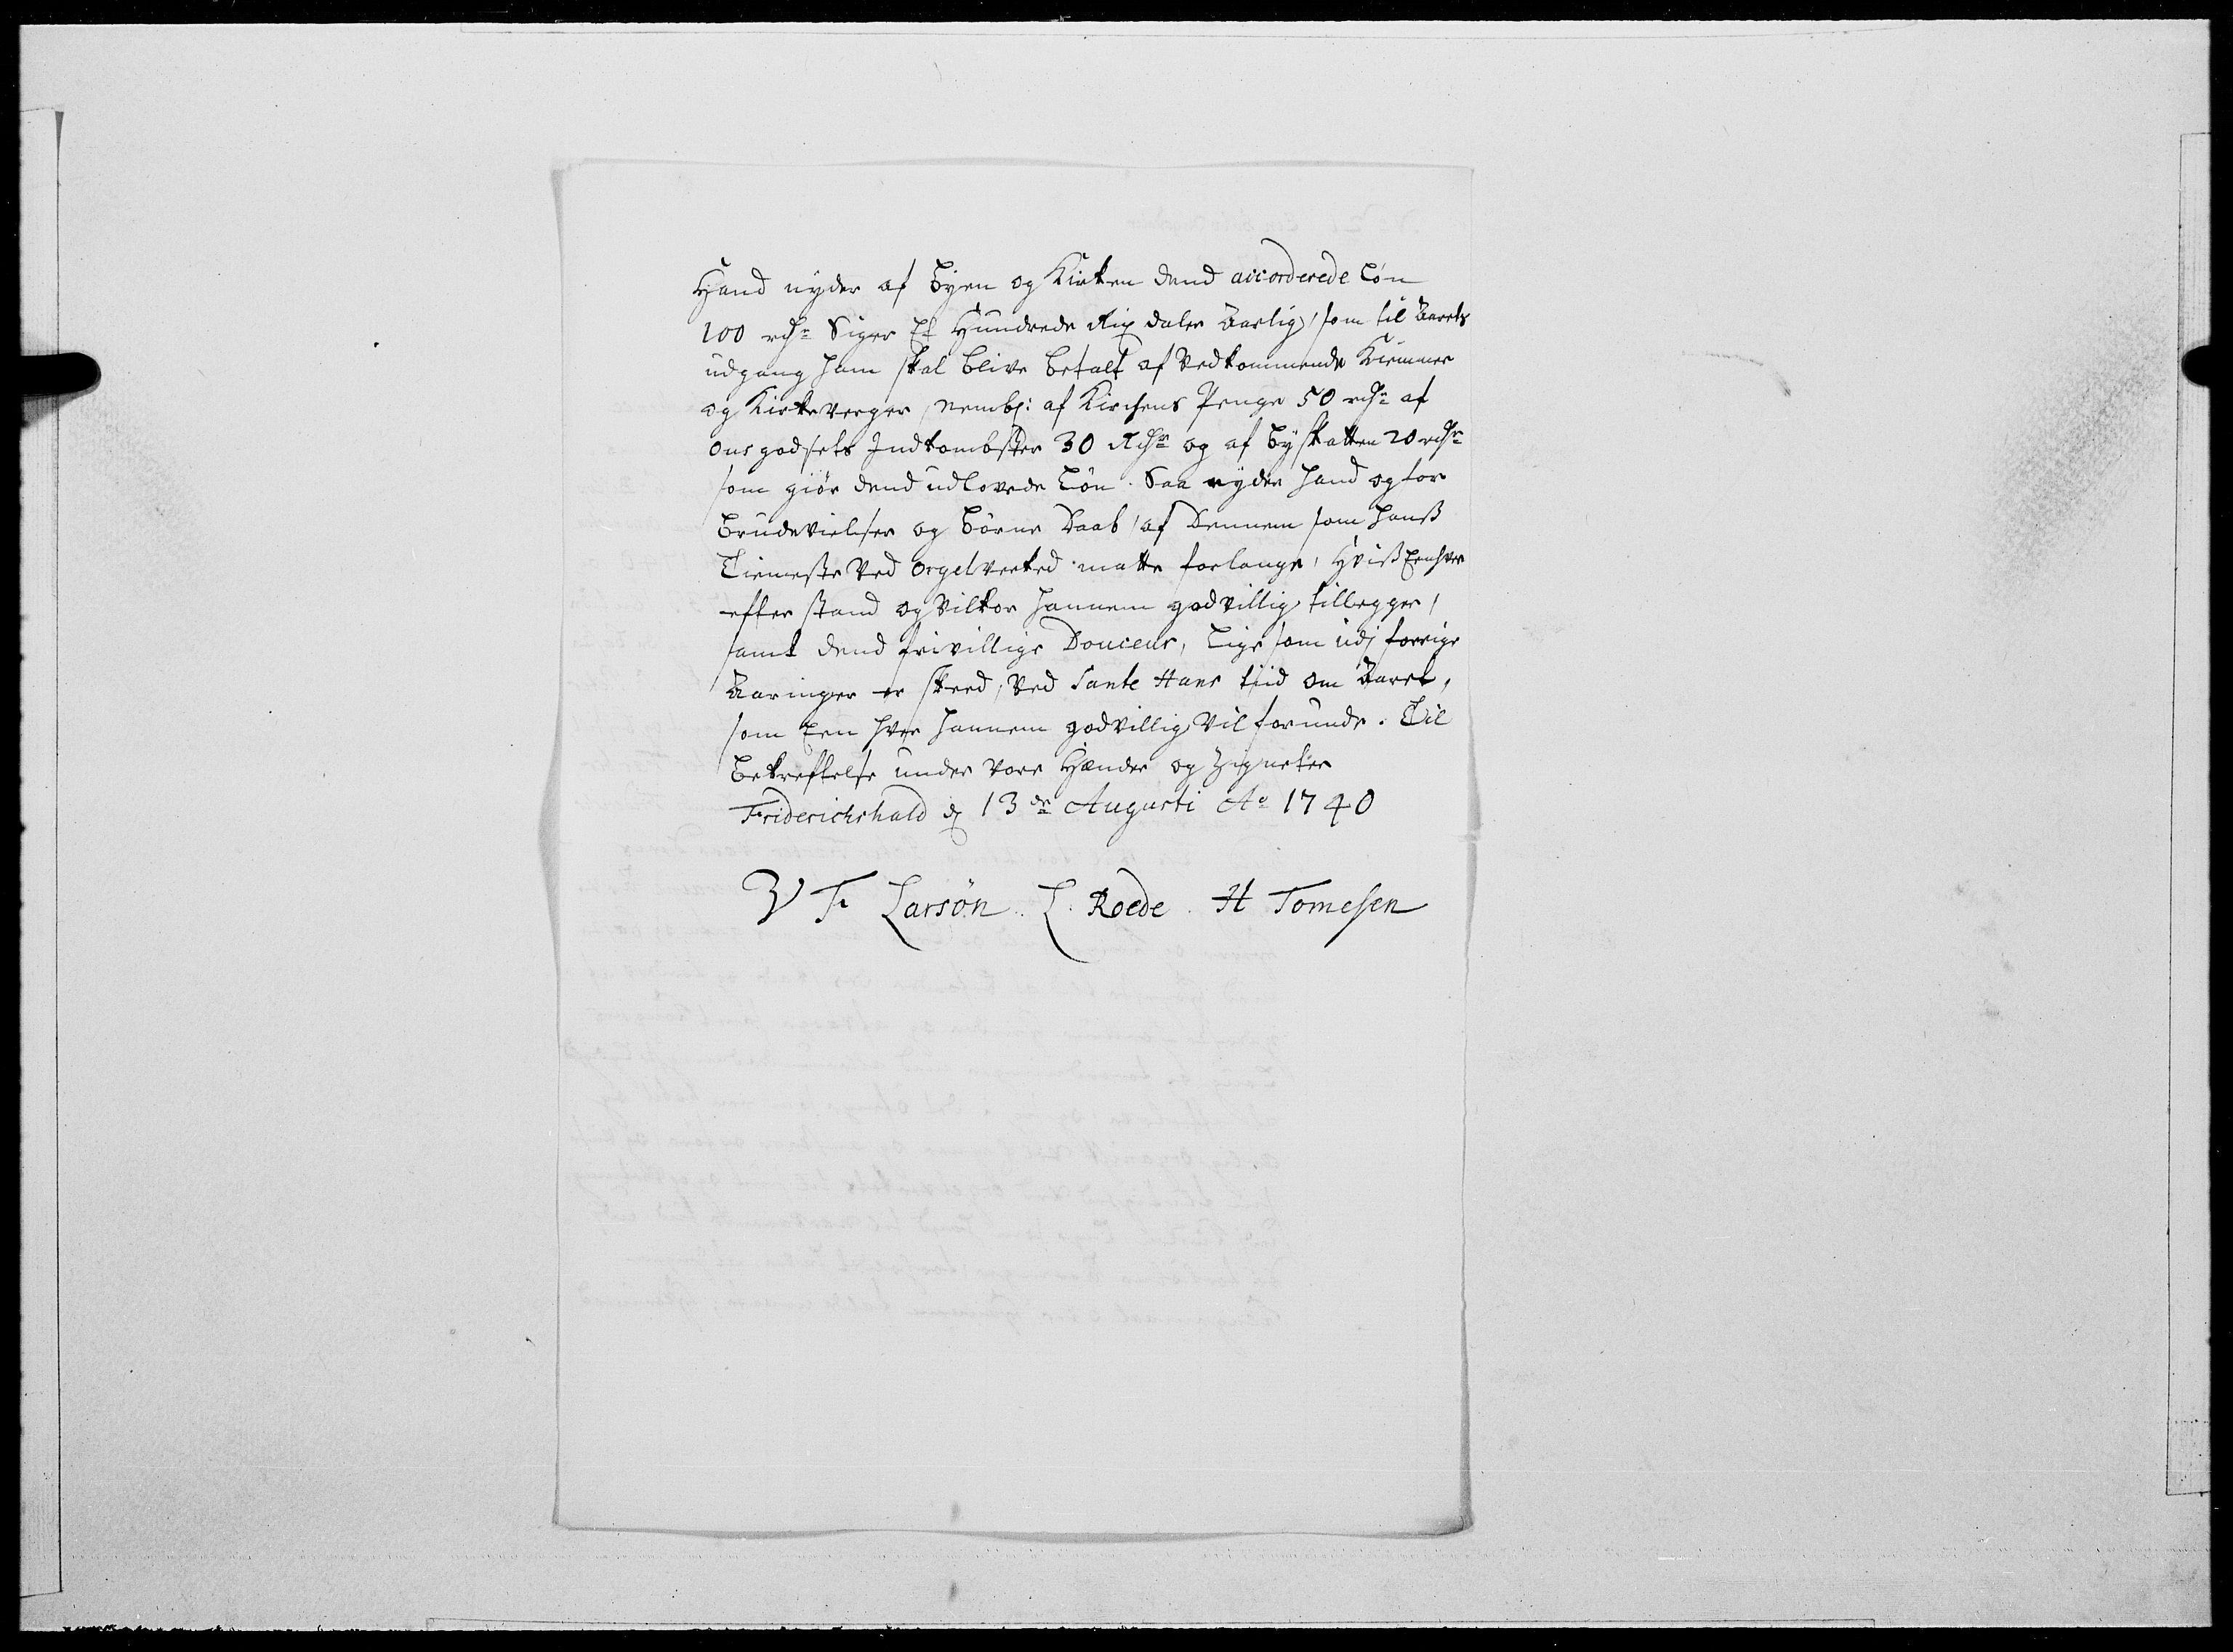 Hand nyder af Byen og Kirken dend accorderede Løn
100 rdr Siger Et Hundrede Rix daler Aarlig, som til Aarets
udgang ham skal blive betalt af Vedkommende Kiemner
og Kirkeverger, nembl: af Kirchens Penge 50 rdr af
Ons godsets Indkombster 30 Rdr og af Byskatten 20 rdr
som giør dend udlovede Løn. Saa nyder hand og for
Brudevielser og Børne Daab, af Dennem som hanß
Tieneste Ved Orgelverked matte forlange, Hviß Eenhver
efter stand og Vilkor hannem godvillig tillegger,
samt dend frivillige Douceur, Lige som udj forrige
Aaringer er skeed, Ved Sante Hans tiid om Aaret,
som Een hver hannem godvillig Vil forunde. Til
Bekreftelse under Vore Hænder og Zigneter
Friderichshald dj 13de Augusti Ao 1740
V F Larsøn. L. Roede. H Tomesen